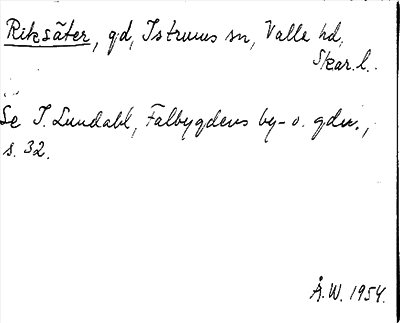 Riksäter, gd, Istrums sn, Valle hd,
Skar. l.
Se I. Lundahl, Falbygdens by- o. gdn.,
s. 32.
Å.W. 1954.